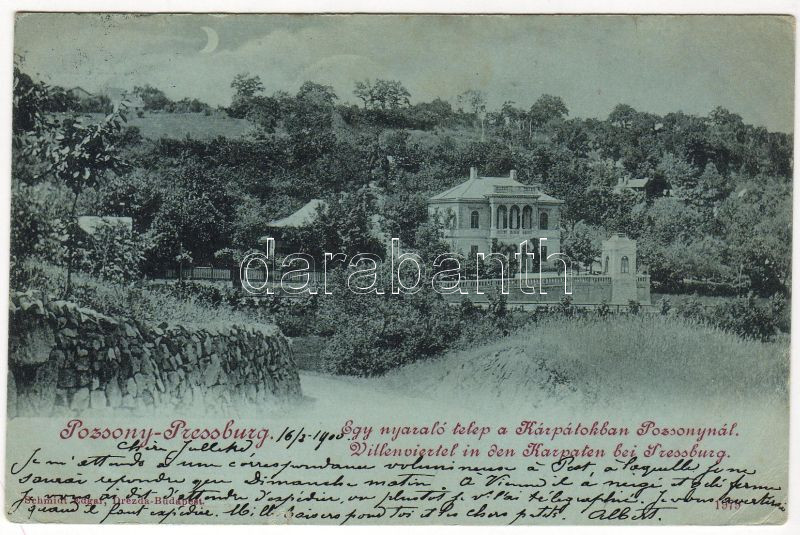 darabanth.com
Pozsony-Pressburg. 16/2 1900
Egy nyaraló telep a Kárpátokban Pozsonynál.
Villenviertel in den Karpaten bei Pressburg.
Je m'attends à une correspondance volumineuse à Pest, à laquelle je ne
saurai répondre que Dimanche matin. A Vienne il a neigé et
d'expédier, ou plustot j'y l'ai télégraphié. Je vous avertirai
quand il faut expédier. Mille baisers pour toi et les chers petits. Albert.
Schmidt Edgar, Drezda-Budapest.
1979